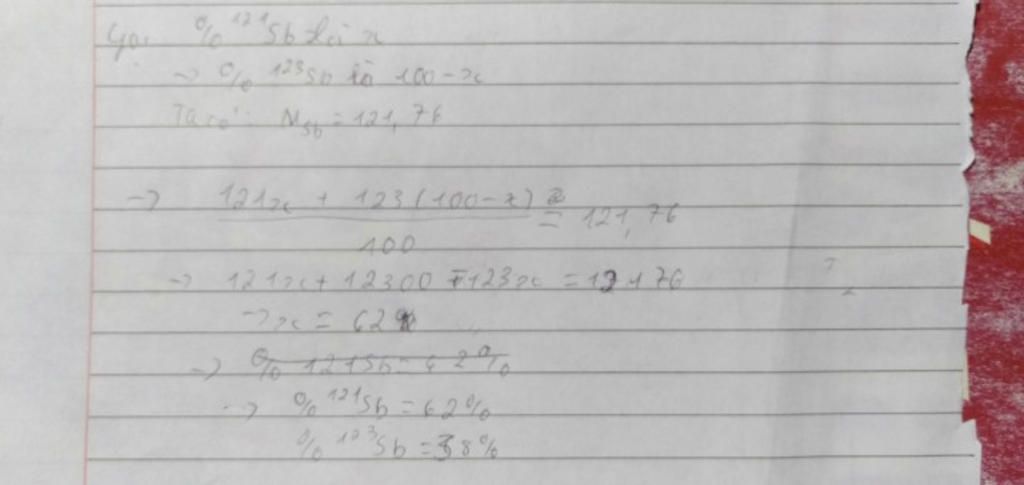 Gọi % ¹²¹Sb là x
→ % ¹²³Sb là 100-x
Ta có: M_Sb = 121,76
→ 121x + 123(100-x) / 100 = 121,76
→ 121x + 12300 - 123x = 12176
→ x = 62
→ % 121Sb = 62%
→ % ¹²¹Sb = 62%
% ¹²³Sb = 38%